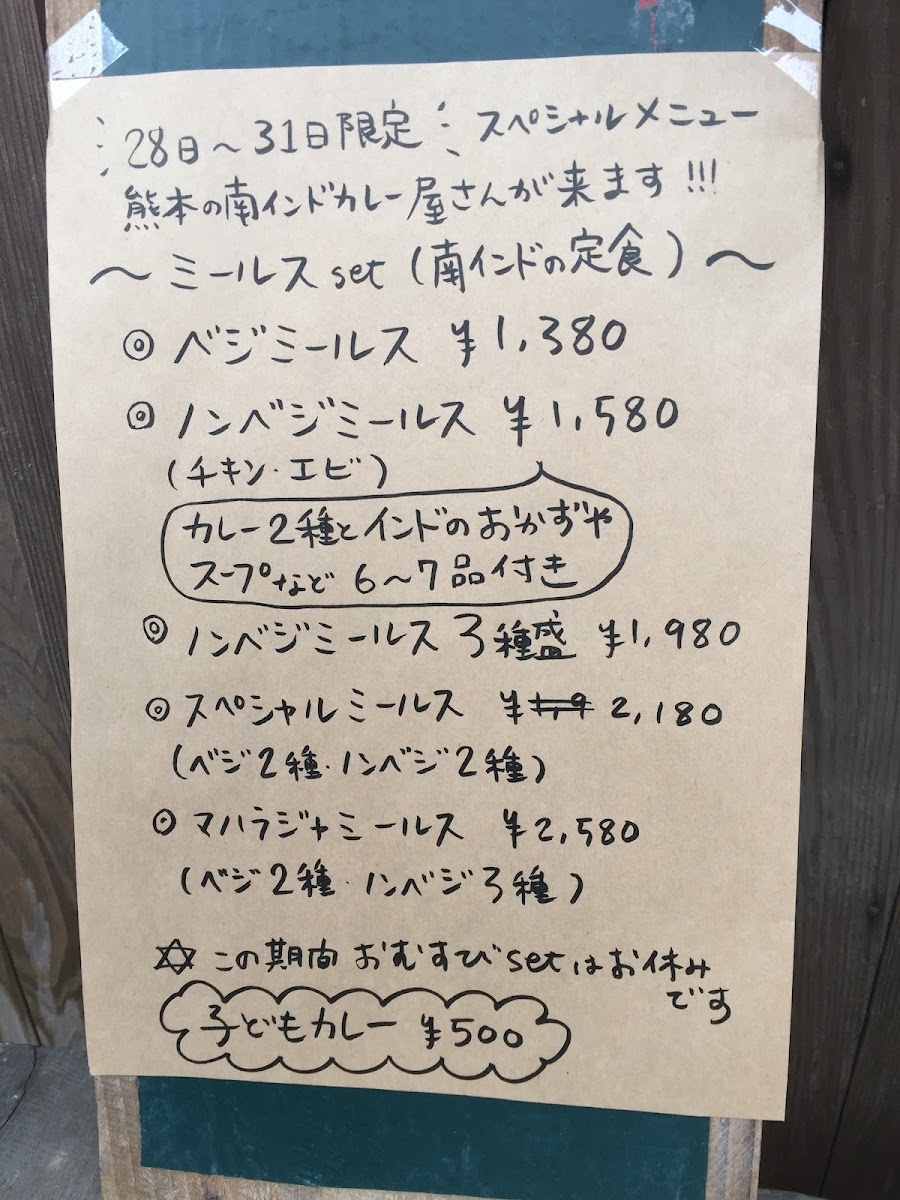 28日～31日限定 スペシャルメニュー
熊本の南インドカレー屋さんが来ます!!!
～ミールスset(南インドの定食)～
◎ベジミールス ¥1,380
◎ノンベジミールス ¥1,580
(チキン・エビ)
カレー2種とインドのおかずや
スープなど6～7品付き
◎ノンベジミールス3種盛 ¥1,980
◎スペシャルミールス ¥1,9 2,180
(ベジ2種・ノンベジ2種)
◎マハラジャミールス ¥2,580
(ベジ2種・ノンベジ3種)
✡この期間おむすびsetはお休み
です
子どもカレー ¥500